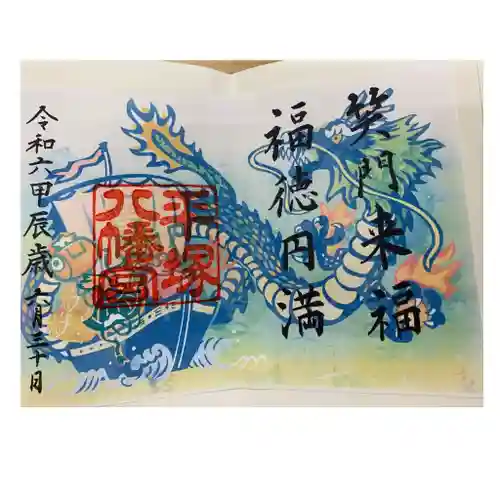 笑門来福
福徳円満
平塚
八幡宮
令和六甲辰歳 六月三十日